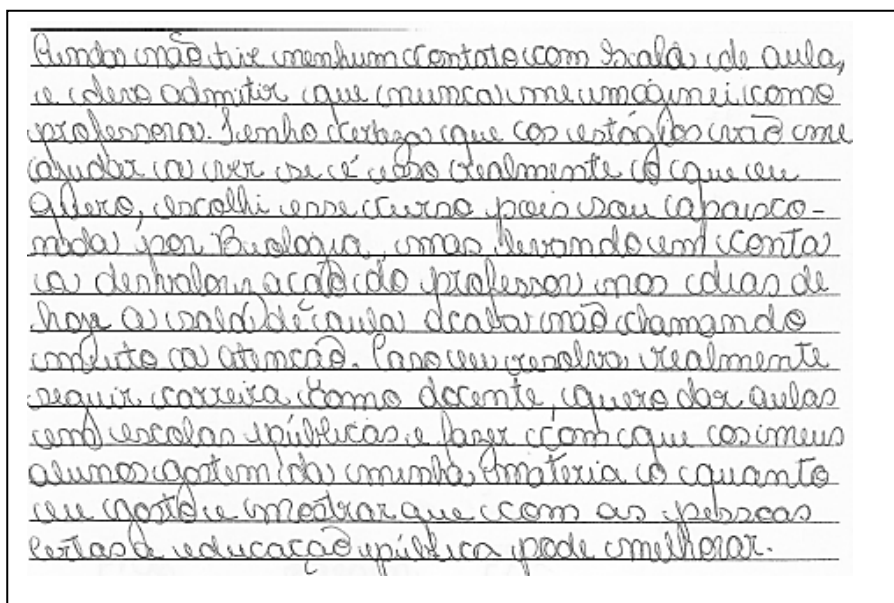 Ainda não tive nenhum contato com sala de aula,
e devo admitir que nunca me imaginei como
professora. Tenho certeza que os estágios irão me
ajudar a ver se é isso realmente o que eu
quero, escolhi esse curso pois sou apaixo-
nada por Biologia, mas levando em conta
a desvalorização do professor nos dias de
hoje a sala de aula acaba não chamando
muito a atenção. Caso eu resolva realmente
seguir carreira como docente, quero dar aulas
em escolas públicas e fazer com que os meus
alunos gostem da minha matéria o quanto
eu gosto e mostrar que com as pessoas
certas a educação pública pode melhorar.